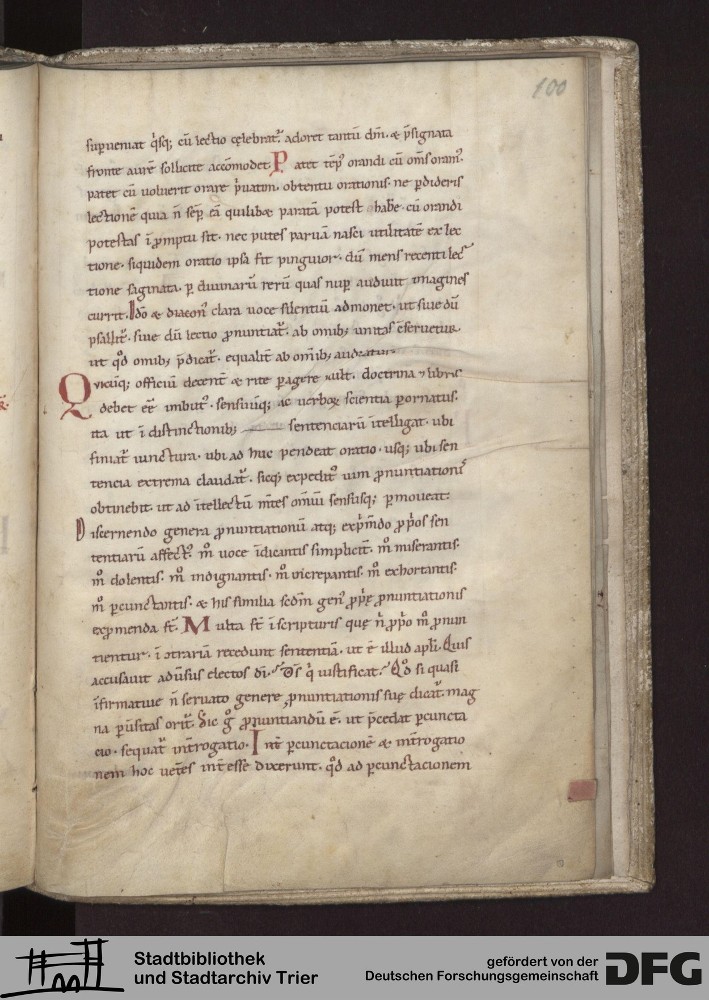 100
supueniat q̇sq; cū lectio celebrat᷑. adoret tantū dm̄. & p̄signata
fronte aurē sollicite accōmodet. Patet tēp᷒ orandi cū om̄s oram᷒.
patet cū voluerit orare p̄uatim. obtentu orationis. ne pdideris
lectionē quia n̄ sēp eā quilibet paratā potest habe᷑. cū orandi
potestas ī promptu sit. nec putes paruā nasci utilitatē ex lec
tione. siquidem oratio ipsa fit pinguior. dū mens recenti lec
tione saginata. p diuinarū rerū quas nup audiuit imagines
currit. Idō & diacon᷒ clara uoce silentiū admonet. ut siue dū
psallit᷑. siue dū lectio pronuntiat᷑. ab omib; unitas cseruetur.
ut qđ omib; p̄dicat᷑. equalit᷑ ab om̄ib; audiatur.
Quicūq; officiū decent & rite pagere uult. doctrina & libris
debet eē imbut᷒. sensuūq; ac uerboꝝ scientia pornatus.
ita ut ī distinctionib; sentenciarū ītelligat. ubi
finiat᷑ iunctura. ubi ad huc pendeat oratio. usq; ubi sen
tencia extrema claudat᷑. sicq; expedit᷒ uim pronuntiationis
obtinebit. ut ad ītellectū mtes omiū sensusq; pmoueat.
Discernendo genera pronuntiationū atq; exp̄mdo prop̄os sen
tentiarū affect᷒. m̊ uoce īdicantis simplicit᷑. m̊ miserantis.
m̊ dolentis. m̊ indignantis. m̊ increpantis. m̊ exhortantis.
m̊ pcunctantis. & his similia scdm gen᷒ prop̄e pronuntiationis
exp̄menda st̄. Multa st̄ ī scripturis quę n̄ prop̄o m̊ pronun
tientur. ī ɔtrariā recedunt sententiā. ut ē illud apli. Quis
accusauit adusus electos di. ds̄ q̇ iustificat. Qđ si quasi
īfirmatiue n̄ seruato genere pronuntiationis suę dicat᷑. mag
na pusitas orit᷑. Sic g̊ pronuntiandū ē. ut p̄cedat pcuncta
cio. sequat᷑ int᷑rogatio. Int᷑ pcunctacionē & int᷑rogatio
nem hoc uet᷑es int᷑esse dixerunt. qđ ad pcunctacionem
Stadtbibliothek
und Stadtarchiv Trier
gefördert von der
Deutschen Forschungsgemeinschaft
DFG